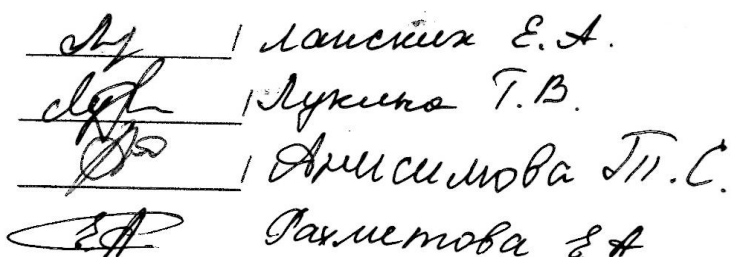 Ланских Е.А.
Лукина Т.В.
Анисимова Т.С.
Рахметова Е А